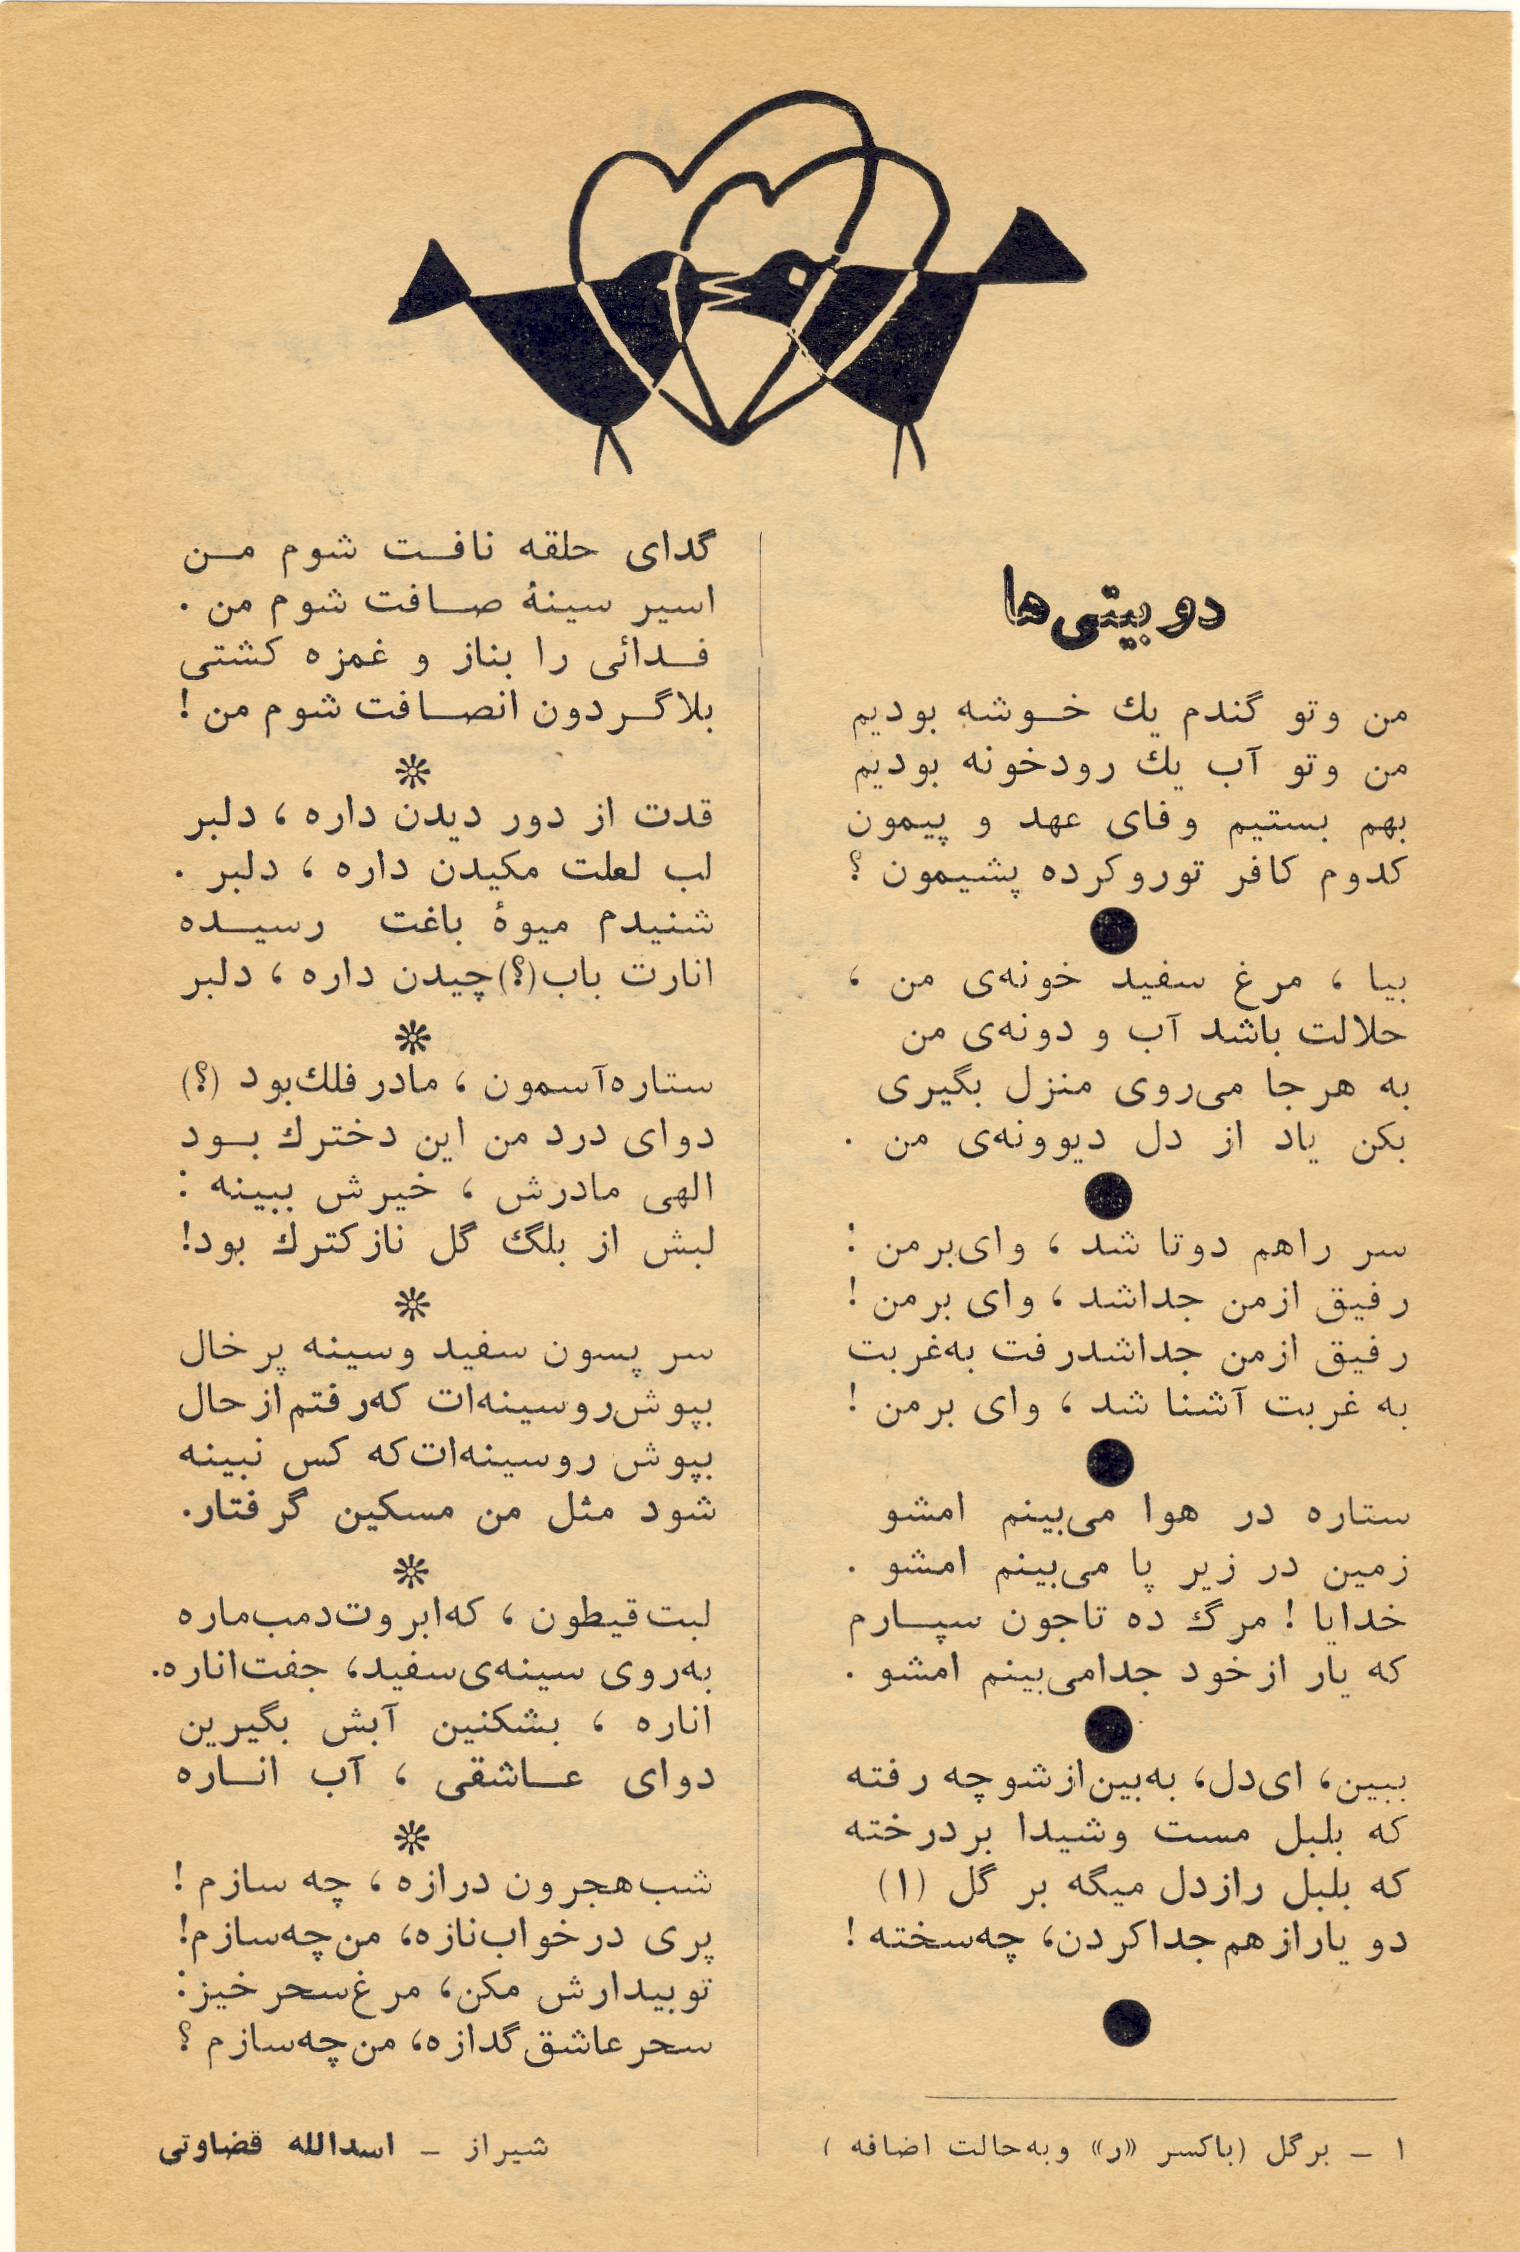 دو بیتی‌ها
من وتو گندم یك خوشه بودیم
من وتو آب یك رودخونه بودیم
بهم بستیم وفای عهد و پیمون
کدوم کافر تورو کرده پشیمون ؟
بیا ، مرغ سفید خونه‌ی من ،
حلالت باشد آب و دونه‌ی من
به هرجا می‌روی منزل بگیری
بکن یاد از دل دیوونه‌ی من .
سر راهم دوتا شد ، وای‌برمن :
رفیق ازمن جداشد ، وای برمن !
رفیق ازمن جداشدرفت به‌غربت
به غربت آشنا شد ، وای برمن !
ستاره در هوا می‌بینم امشو
زمین در زیر پا می‌بینم امشو .
خدایا ! مرگ ده تاجون سپارم
که یار ازخود جدامی‌بینم امشو .
ببین، ای‌دل، به‌بین‌ازشوچه رفته
که بلبل مست وشیدا بردرخته
که بلبل رازدل میگه بر گل (۱)
دو یارازهم‌جداکردن، چه‌سخته !
۱ – برگل (باکسر «ر» وبه‌حالت اضافه )
گدای حلقه نافت شوم من
اسیر سینهٔ صافت شوم من .
فدائی را بناز و غمزه کشتی
بلاگردون انصافت شوم من !
قدت از دور دیدن داره ، دلبر
لب لعلت مکیدن داره ، دلبر .
شنیدم میوهٔ باغت رسیده
انارت باب(؟)چیدن داره ، دلبر
ستاره‌آسمون ، مادرفلك‌بود (؟)
دوای درد من این دخترك بود
الهی مادرش ، خیرش ببینه :
لبش از بلگ گل نازکترك بود!
سر پسون سفید وسینه پرخال
بپوش‌روسینه‌ات که‌رفتم‌ازحال
بپوش روسینه‌ات‌که کس نبینه
شود مثل من مسکین گرفتار.
لبت‌قیطون ، که‌ابروت‌دمب‌ماره
به‌روی سینه‌ی‌سفید، جفت‌اناره.
اناره ، بشکنین آبش بگیرین
دوای عاشقی ، آب اناره
شب‌هجرون درازه ، چه سازم !
پری درخواب‌نازه، من‌چه‌سازم!
توبیدارش مکن، مرغ‌سحرخیز:
سحرعاشق‌گدازه، من‌چه‌سازم ؟
شیراز – اسدالله قضاوتی